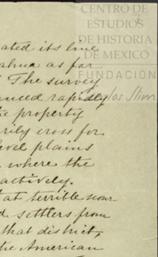 CENTRO DE
ESTUDIOS
DE HISTORIA
DE MEXICO
FUNDACIÓN
Carlos Slim
ated its line
ahua as far
The survey
anced rapidly
the property
rily cross for
evel plains
where the
actively.
at terrible scar
d settlers from
that district,
the American